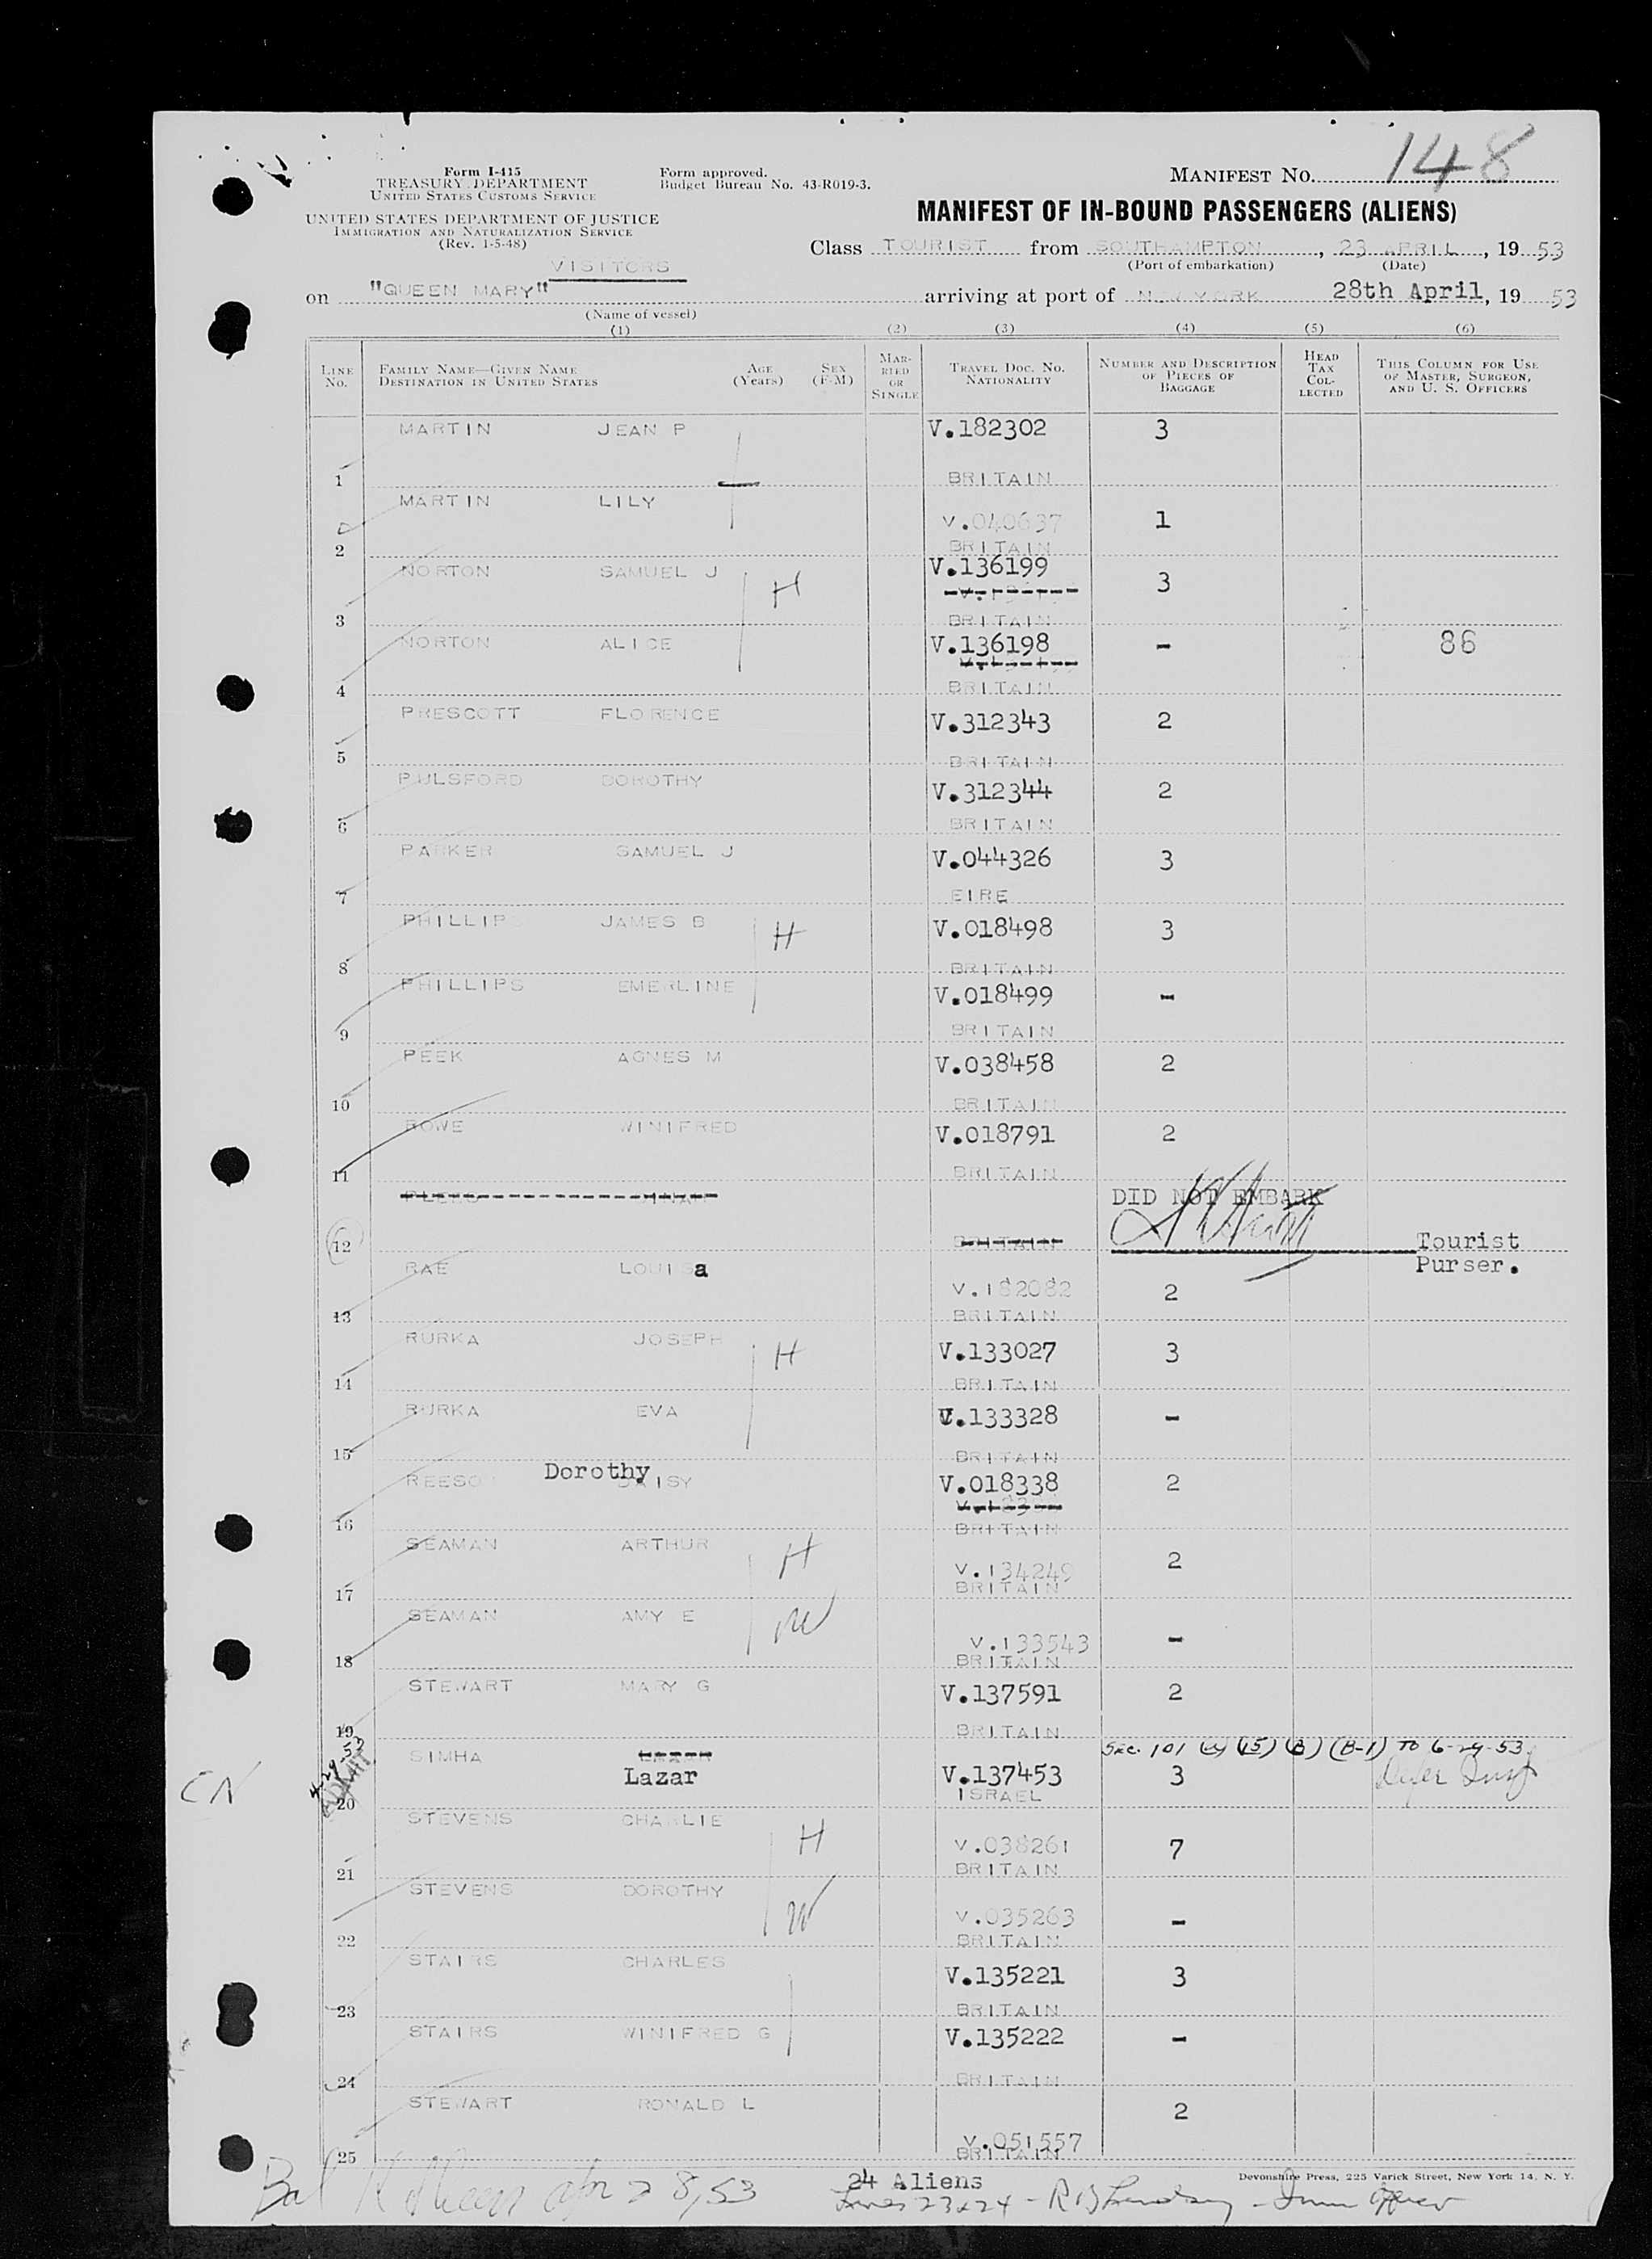 148
Form I-415
TREASURY DEPARTMENT
UNITED STATES CUSTOMS SERVICE
Form approved.
Budget Bureau No. 43-R019-3.
MANIFEST NO.
UNITED STATES DEPARTMENT OF JUSTICE
IMMIGRATION AND NATURALIZATION SERVICE
(Rev. 1-5-48)
MANIFEST OF IN-BOUND PASSENGERS (ALIENS)
Class TOURIST from SOUTHAMPTON, 23 APRIL, 1953
(Port of embarkation) (Date)
VISITORS
on "QUEEN MARY" arriving at port of NEW YORK 28th April, 1953
(Name of vessel)
(1) (2) (3) (4) (5) (6)
LINE NO. FAMILY NAME—GIVEN NAME DESTINATION IN UNITED STATES AGE (YEARS) SEX (F-M) MARRIED OR SINGLE TRAVEL DOC. NO. NATIONALITY NUMBER AND DESCRIPTION OF PIECES OF BAGGAGE HEAD TAX COLLECTED THIS COLUMN FOR USE OF MASTER, SURGEON, AND U. S. OFFICERS
MARTIN JEAN P V.182302 3
1 BRITAIN
MARTIN LILY V.040637 1
2 BRITAIN
NORTON SAMUEL J H V.136199 3
3 BRITAIN
NORTON ALICE V.136198 - 86
4 BRITAIN
PRESCOTT FLORENCE V.312343 2
5 BRITAIN
PULSFORD DOROTHY V.312344 2
6 BRITAIN
PARKER SAMUEL J V.044326 3
7 EIRE
PHILLIPS JAMES B H V.018498 3
8 BRITAIN
PHILLIPS EMERLINE V.018499 -
9 BRITAIN
PEEK AGNES M V.038458 2
10 BRITAIN
ROWE WINIFRED V.018791 2
11 BRITAIN
DID NOT EMBARK
12 BRITAIN Tourist
Purser.
RAE LOUISa V.182082 2
13 BRITAIN
RURKA JOSEPH H V.133027 3
14 BRITAIN
RURKA EVA V.133328 -
15 BRITAIN
REESO Dorothy DAISY V.018338 2
16 BRITAIN
SEAMAN ARTHUR H V.134249 2
17 BRITAIN
SEAMAN AMY E W V.133543 -
18 BRITAIN
STEWART MARY G V.137591 2
19 BRITAIN
Sec. 101 (a) (15) (B) (B-1) TO 6-29-53
SIMHA Lazar V.137453 3
CN 4-29-53 ADMIT
20 ISRAEL
STEVENS CHARLIE H V.038261 7
21 BRITAIN
STEVENS DOROTHY W V.035263 -
22 BRITAIN
STAIRS CHARLES V.135221 3
23 BRITAIN
STAIRS WINIFRED G V.135222 -
24 BRITAIN
STEWART RONALD L 2
V.051557
25 BRITAIN
24 Aliens
Devonshire Press, 225 Varick Street, New York 14, N. Y.
Apr 28, 53
Lines 23 & 24 - R B Lindsay - Imm Officer